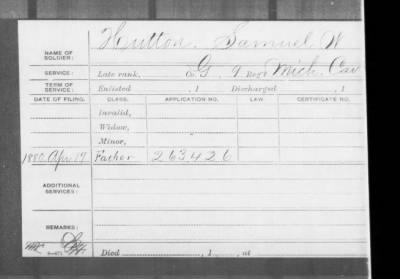 NAME OF SOLDIER: Hutton, Samuel W
SERVICE: Late rank, Co. G, 9 Reg't Mich. Cav
TERM OF SERVICE: Enlisted , 1 Discharged , 1
DATE OF FILING. CLASS. APPLICATION NO. LAW. CERTIFICATE NO.
Invalid,
Widow,
Minor,
1880 Apr 17 Father 263.426
ADDITIONAL SERVICES:
REMARKS:
Died , 1 , at